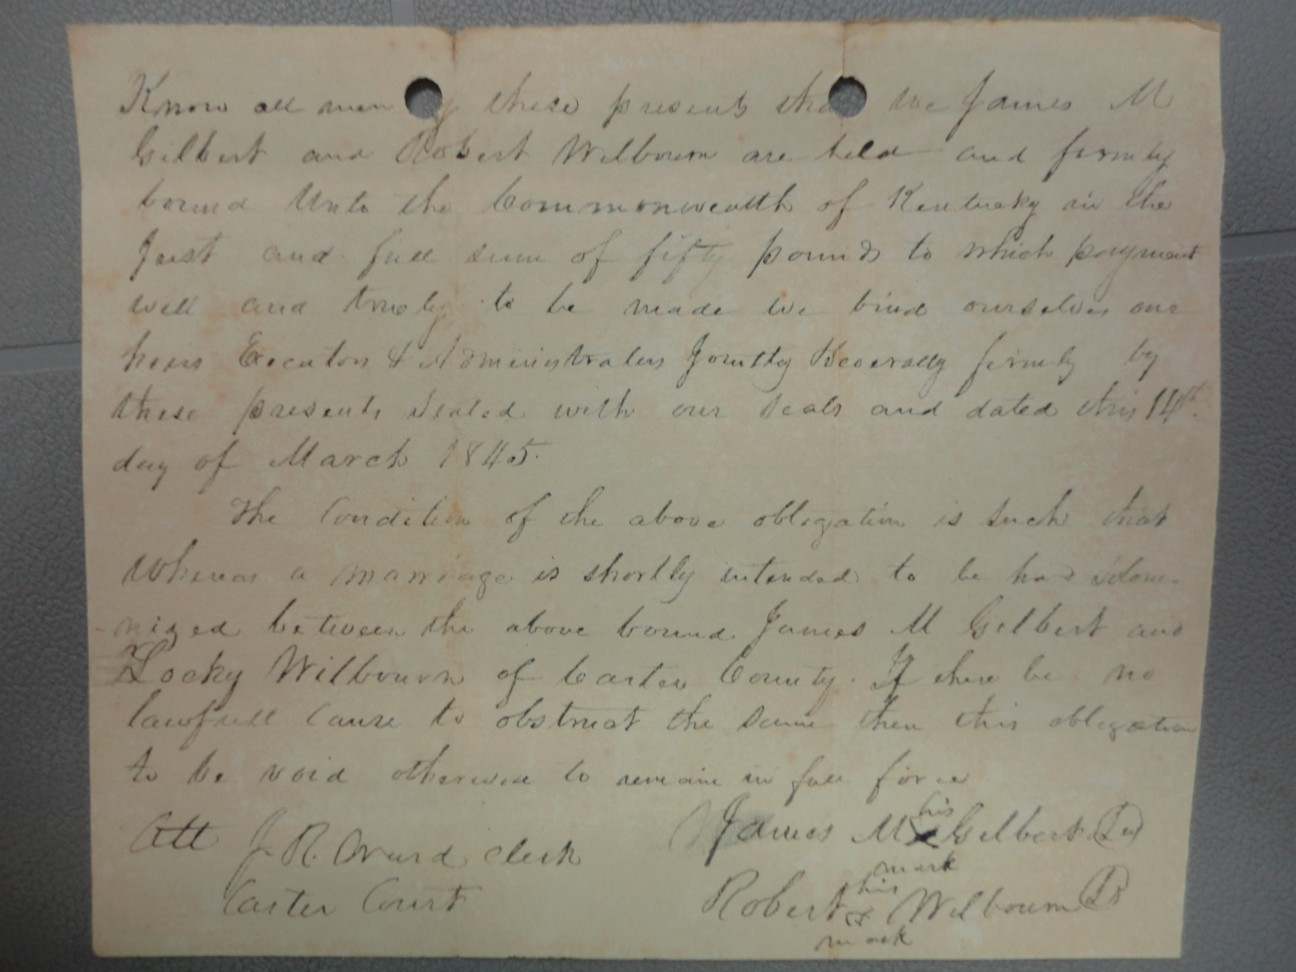 Know all men by these presents that we James M
Gilbert and Robert Wilbourn are held and firmly
bound Unto the Commonwealth of Kentucky in the
Just and full sum of fifty pounds to which payment
well and truely to be made we bind ourselves our
heirs Executors & Administrators Jointly & Severally firmly by
these presents Sealed with our Seals and dated this 14th
day of March 1845.
The Condition of the above obligation is Such that
Whereas a marriage is shortly intended to be had solem-
nized between the above bound James M Gilbert and
Locky Wilbourn of Carter County. If there be no
lawfull Cause to obstruct the same then this obligation
to be void otherwise to remain in full force
Att J. R. Ward clerk
Carter Court
James M his x mark Gilbert
Robert his x mark Wilbourn